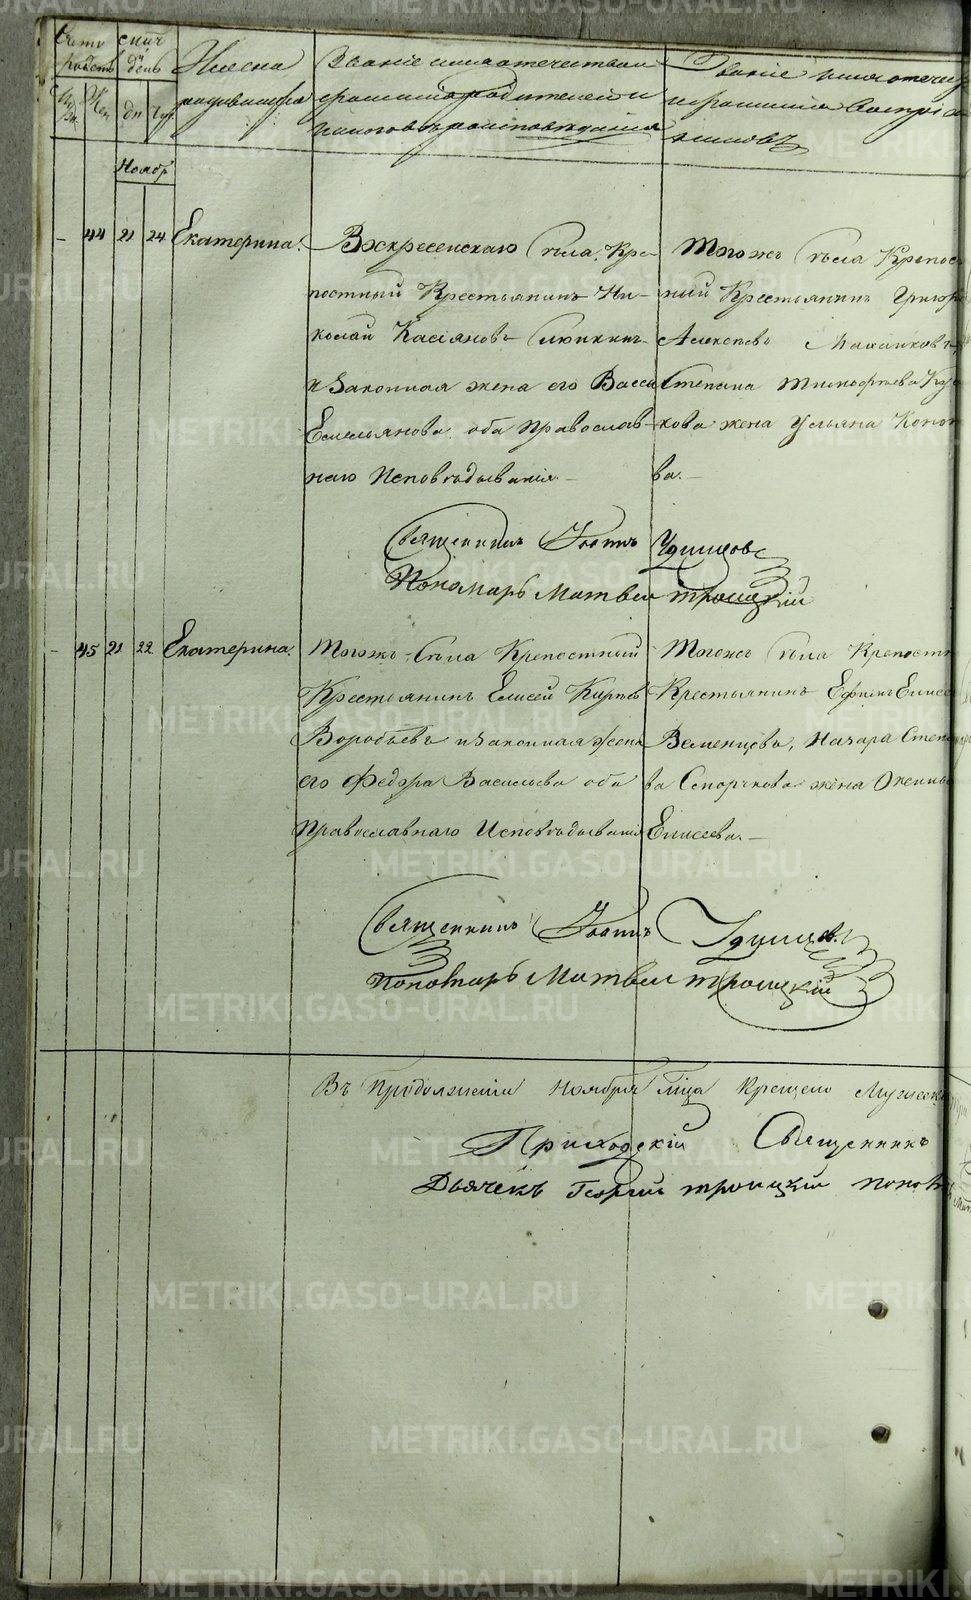 Счетъ родив. Мѣсяцъ и день
Имена родившихся
Званіе имя отечество и фамилія родителей и какого вѣроисповѣданія
Званіе имя отечество и фамилія воспріемниковъ
Му. Же. дн
Ноябр
44 21 24 Екатерина.
Воскресенскаго Села, Кре-
постный Крестьянинъ Ни-
колай Касіяновъ
и Законная жена его Васса
Емельянова оба Православ-
наго Исповѣдыванія.
Тогожъ Села Крепос
ный Крестьянинъ Григор
Алексѣевъ
Степана Тимофѣева
кова жена Ульяна Конон
ва.
Священникъ Іоаннъ Удинцовъ
Пономарь Матвей Троицкій
45 21 22 Екатерина.
Тогожъ Села Крепостный
Крестьянинъ Елисей Карповъ
Воробьевъ и Законная жена
его Федора Васильева оба
Православнаго Исповѣдыванія
Тогожъ Села Крепостн
Крестьянинъ Ефимъ Елисе
Веменцовъ, Назара Степа
ва Сторчкова жена Оксинья
Елисеева.
Священникъ Іоаннъ Удинцовъ
Пономарь Матвей Троицкій
Въ Продолженіи Ноября Мца Крещено Мужеска
Приходскій Священникъ
Дьячекъ Георгій Троицкій Поном
METRIKI.GASO-URAL.RU